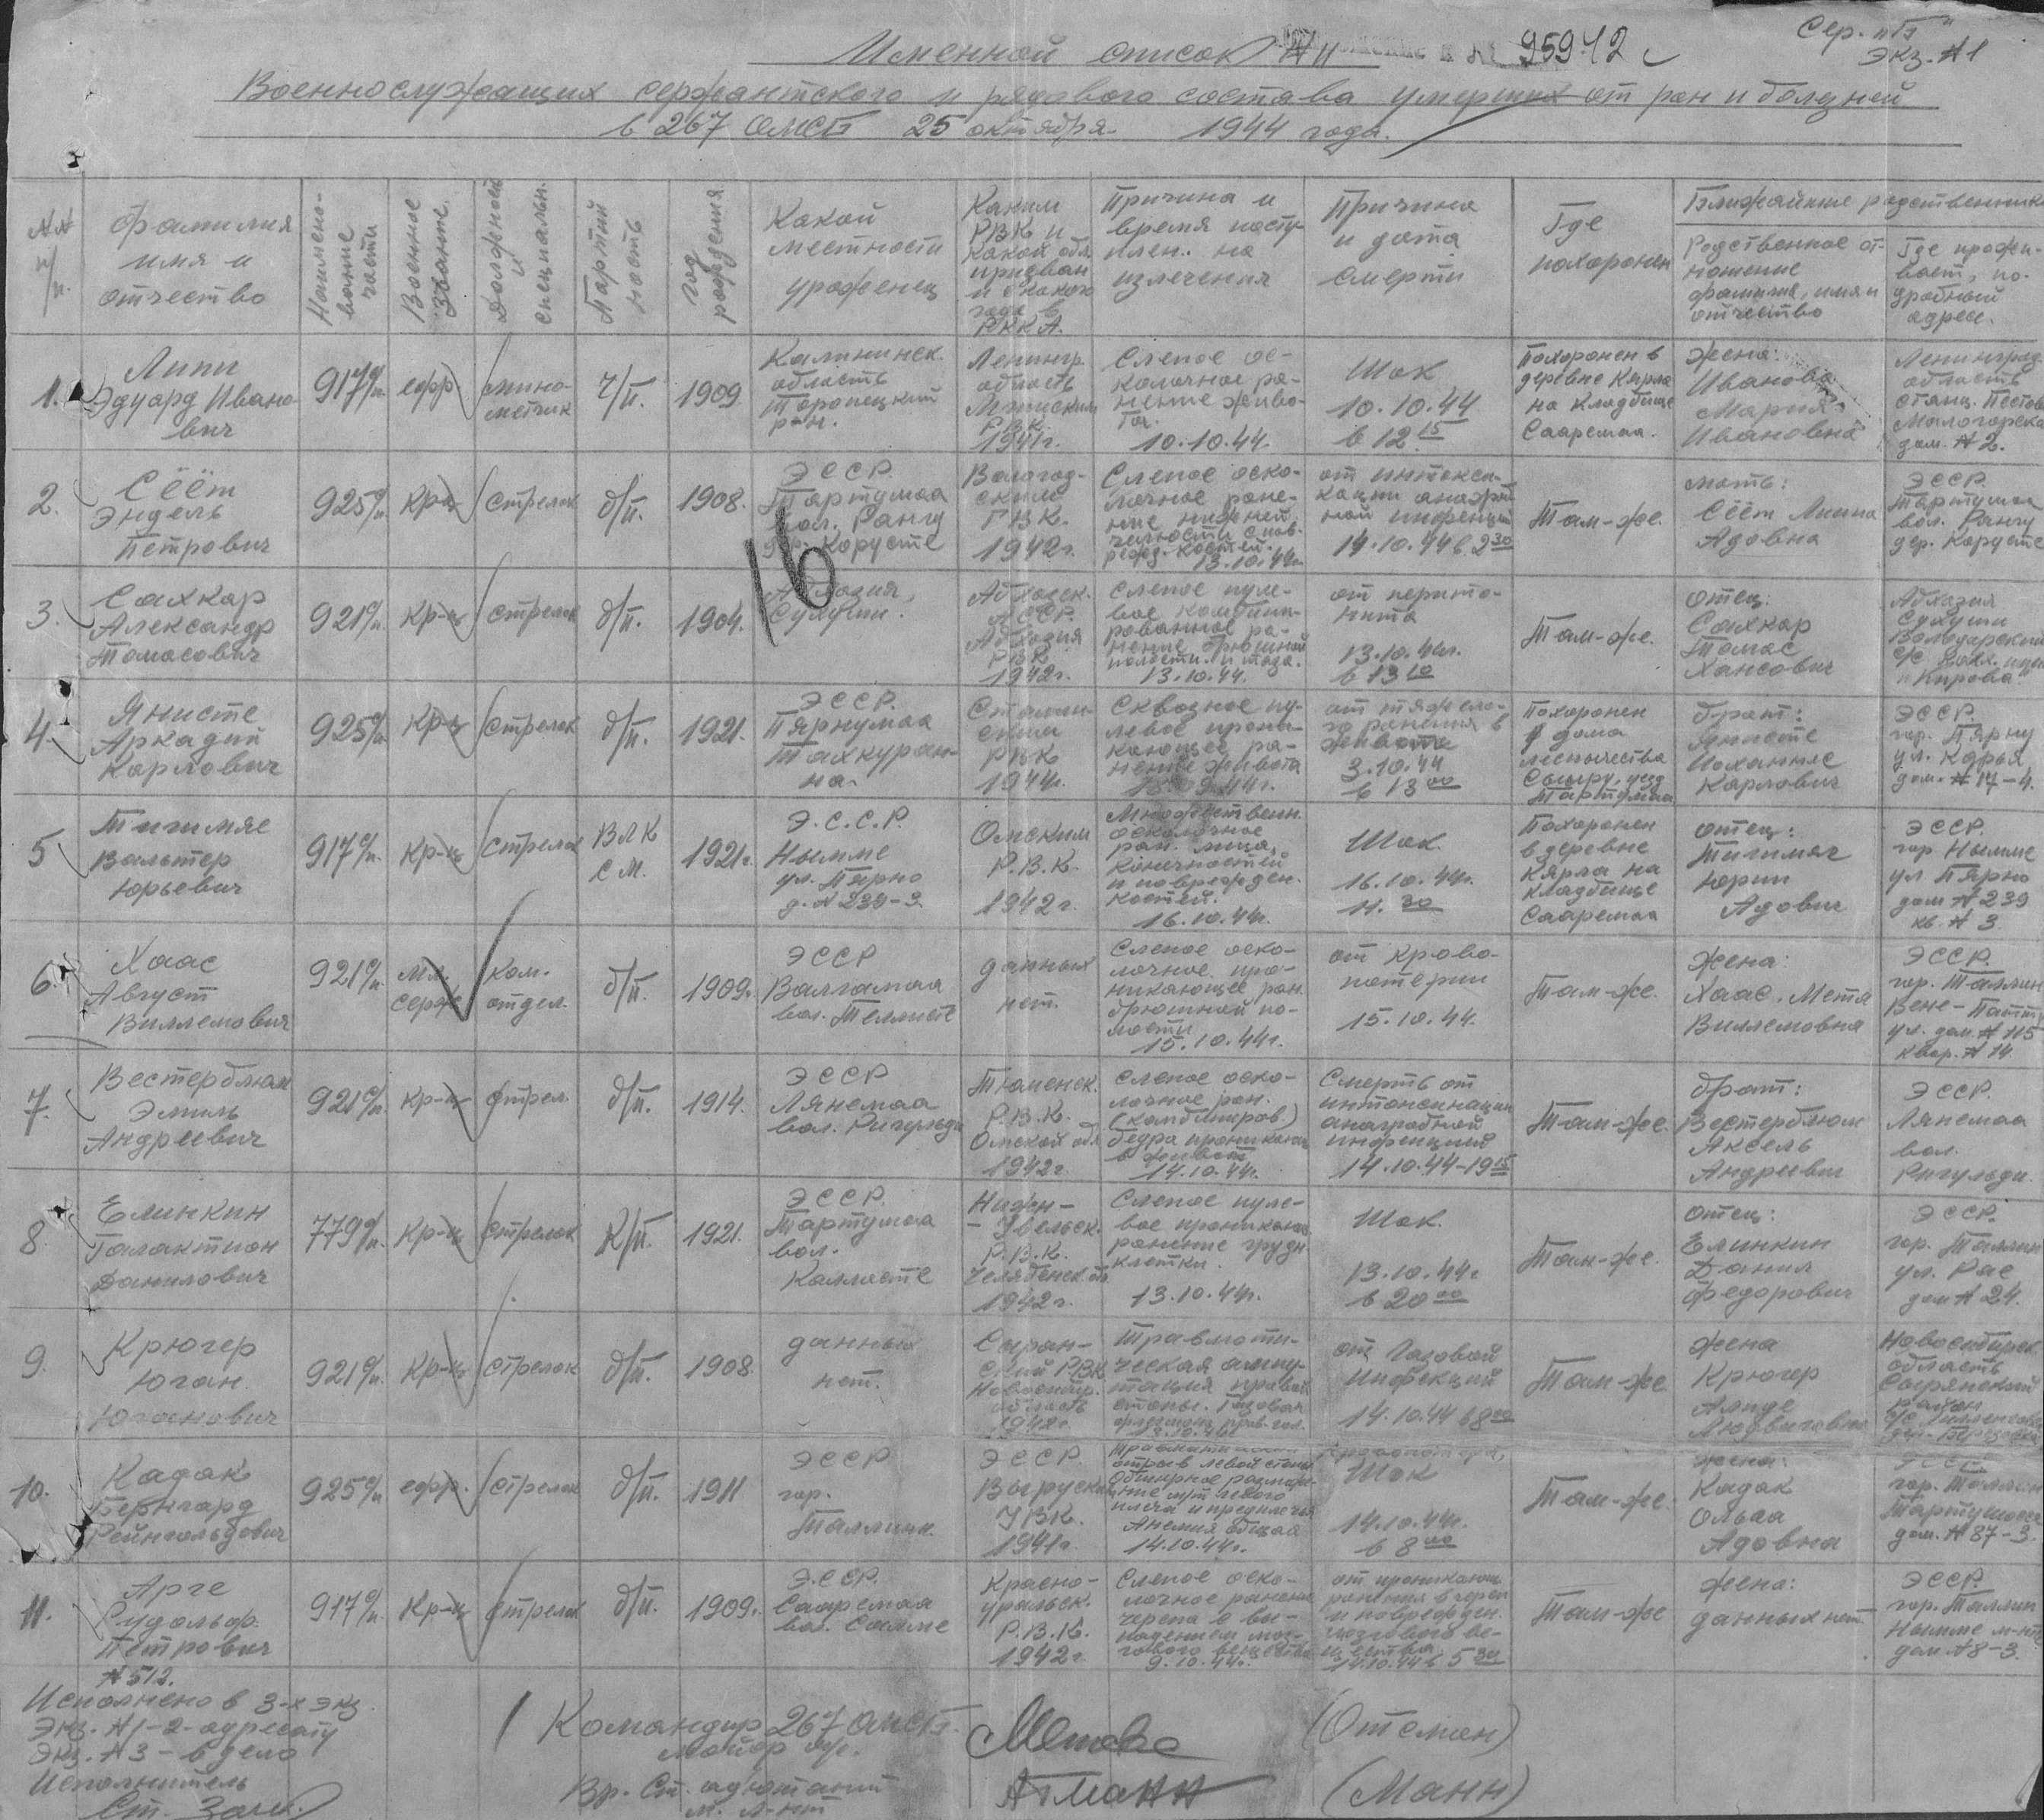 Сер. "Б"
экз. №1
Именной список №11
95942с
Военнослужащих сержантского и рядового состава умерших от ран и болезней
в 267 ОМСБ 25 октября 1944 года.
№№ п/п.
Фамилия имя и отчество
Наименование части
Военное звание
Должность и специальн.
Партийность
Год рождения
Какой местности уроженец
Каким РВК и какой обл. призван и с какого года в РККА.
Причина и время поступлен. на излечения
Причина и дата смерти
Где похоронен
Ближайшие родственники
Родственное отношение фамилия, имя и отчество
Где проживает, подробный адрес.
1. Липп Эдуард Иванович
917 сп.
ефр
минометчик
ч/п.
1909
Калининск. область Торопецкий р-н.
Ленингр. область
РВК.
1941г.
Слепое осколочное ранение живота.
10.10.44.
Шок
10.10.44
в 12 15
Похоронен в деревне Кярла на кладбище Сааремаа.
жена:
Иванова
Мария
Ивановна
Ленинград. область
станц. Пестово
дом. №2.
2. Сёёт
Эндель
Петрович
925 сп.
кр-ц
стрелок
б/п.
1908.
ЭССР.
Тартумаа
вол. Рангу
дер. Корусте
Вологодским
ГВК.
1942г.
Слепое осколочное ранение нижней
конечности с повреж. костей.
13.10.44г.
от интоксикации анаэробной инфекции
14.10.44 в 2 30
Там-же.
мать:
Сёёт Лиина
Адовна
ЭССР.
Тартумаа
вол. Рангу
дер. Корусте
3. Сахкар
Александр
Томасович
921 сп.
кр-ц
стрелок
б/п.
1904.
Абхазия,
Сухуми.
16
Абхазск.
АССР.
Абхазия
РВК
1942г.
Слепое пулевое комбинированное ранение брюшной полости и таза.
13.10.44.
от перитонита
13.10.44г.
в 13 10
Там-же.
отец:
Сахкар
Томас
Хансович
Абхазия
Сухуми
с/с колх. им
"Кирова"
4. Янисте
Аркадий
Карлович
925 сп.
кр-ц
стрелок
б/п.
1921.
ЭССР.
Пярнумаа
РВК
1944г.
Сквозное пулевое проникающее ранение живота
от тяжелого ранения в живота
3.10.44
в 13 00
Похоронен
у дома
лесничества
уезд
Тартумаа
брат:
Янисте
Йоханнес
Карлович
ЭССР.
гор. Пярну
ул. Карья
дом. №17-4.
5 Тигимяе
Вальтер
Юрьевич
917 сп.
кр-ц
стрелок
ВЛКСМ.
1921г.
Э.С.С.Р.
Нымме
ул. Пярно
д. №239-3.
Омским
Р.В.К.
1942г.
Множественн. осколочное ран. лица, конечностей и поврежден. костей.
16.10.44г.
Шок.
16.10.44г.
11. 30
Похоронен
в деревне
Кярла на
кладбище
Сааремаа
отец:
Тигимяе
Юрии
Адович
ЭССР.
гор. Нымме
ул Пярно
дом №239
кв. №3
6. Хаас
Август
Виллемович
921 сп.
мл. серж
ком. отдел.
б/п.
1909.
ЭССР
Валгамаа
вол. Теллисте
данных нет.
Слепое осколочное проникающее ран. брюшной полости
15.10.44г.
от кровопотери
15.10.44.
Там-же.
жена:
Хаас Мета
Виллемовна
ЭССР.
гор. Таллин
ул. дом. №115
квар. №14
7. Вестерблюм
Эмиль
Андреевич
921 сп.
кр-ц
стрел.
б/п.
1914.
ЭССР
Лянемаа
вол. Ригульди
Тюменск.
Р.В.К.
Омской обл
1942г.
Слепое осколочное ран.
(комбиниров)
бедра проникающ
в живот
14.10.44г.
Смерть от интоксикации анаэробной инфекций
14.10.44-19 15
Там-же.
брат:
Вестерблюм
Аксель
Андреевич
ЭССР.
Лянемаа
вол.
Ригульди.
8. Елинкин
Галактион
Данилович
779 сп.
кр-ц
стрелок
К/п.
1921.
ЭССР.
Тартумаа
вол.
Калласте
Нижне-Увельск.
Р.В.К.
Челябинск. об
1942г.
Слепое пулевое проникающ ранение грудн клетки.
13.10.44г.
Шок.
13.10.44г
в 20 00
Там-же.
отец:
Елинкин
Данил
Федорович
ЭССР.
гор. Таллин
ул. Рае
дом №24.
9. Крюгер
Юган
Юганович
921 сп.
кр-ц
стрелок
б/п.
1908.
данных нет.
РВК
Новосибир.
область
1942г.
Травмотическая ампутация правой стопы. Газовая
13.10.44г.
от газовой
инфекций
14.10.44 в 8 00
Там-же
жена
Крюгер
Алиде
Людвиговна
Новосибирск.
область
район
10. Кадак
Бернгард
Рейнгольдович
925 сп.
ефр.
стрелок
б/п.
1911
ЭССР
гор.
Таллинн.
ЭССР.
Выруским
УВК.
1941г.
отрыв левой стопы
Обширное
левого
плеча и предплечья
Анемия общая
14.10.44г.
Шок
14.10.44г.
в 8 00
Там-же.
жена:
Кадак
Ольга
Адовна
ЭССР
гор. Таллин
дом. №87-3.
11. Арге
Рудольф.
Петрович
917 сп.
кр-ц
стрелок
б/п.
1909.
Э.ССР.
Сааремаа
вол. Салме
Красно-уральск.
Р.В.К.
1942г
Слепое осколочное ранение черепа с выпадением мозгового вещества
9.10.44г.
от проникающ. ранения в череп и поврежден. мозгового вещества.
14.10.44 в 5 30
Там-же
жена:
данных нет.
ЭССР.
гор. Таллин
Нымме
дом. №8-3.
№512.
Исполнено в 3-х экз.
Экз. №1-2-адресату
Экз. №3-в дело
Исполнитель
Командир 267 ОМСБ.
майор м/с.
(Отсман)
Вр. Ст. адъютант
м. л-нт
АтМанн
(Манн)